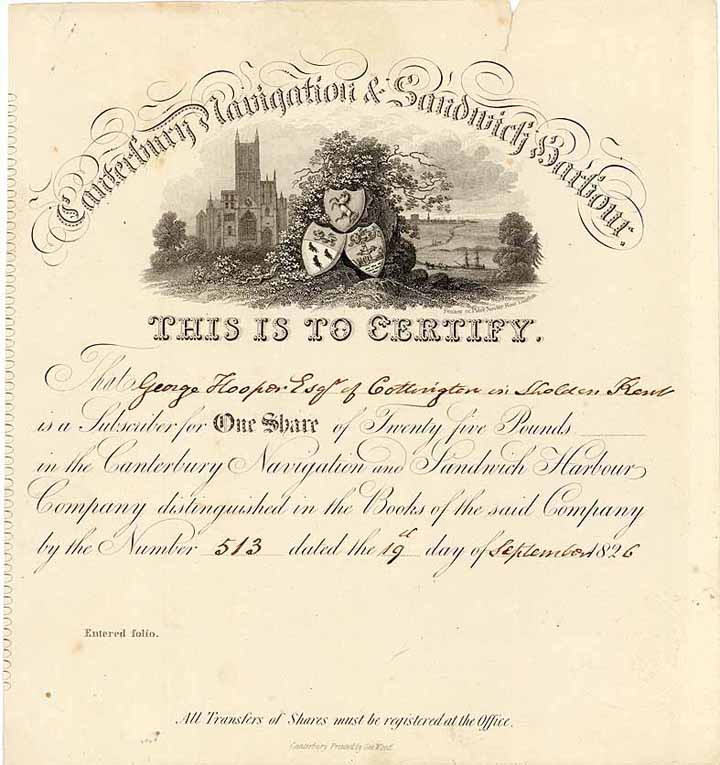 Canterbury Navigation & Sandwich Harbour.
THIS IS TO CERTIFY.
That George Hooper Esqr. of Cottington in Sholden Kent
is a Subscriber for One Share of Twenty five Pounds
in the Canterbury Navigation and Sandwich Harbour
Company distinguished in the Books of the said Company
by the Number 513 dated the 19th day of September 1826
Entered folio.
All Transfers of Shares must be registered at the Office.
Canterbury Printed by Geo. Wood